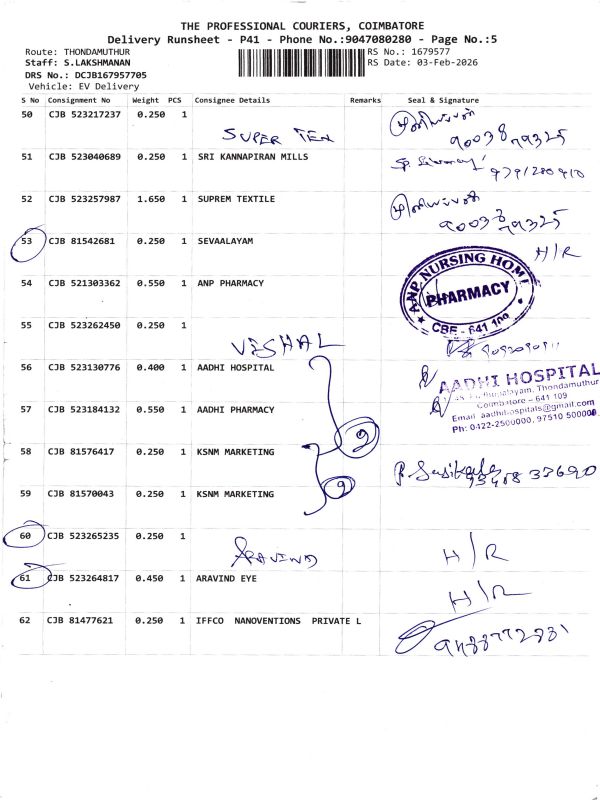 THE PROFESSIONAL COURIERS, COIMBATORE
Delivery Runsheet - P41 - Phone No.:9047080280 - Page No.:5
Route: THONDAMUTHUR
RS No.: 1679577
Staff: S.LAKSHMANAN
RS Date: 03-Feb-2026
DRS No.: DCJB167957705
Vehicle: EV Delivery
S No Consignment No Weight PCS Consignee Details Remarks Seal & Signature
50 CJB 523217237 0.250 1
SUPER TEN
900387 9325
51 CJB 523040689 0.250 1 SRI KANNAPIRAN MILLS
9791280910
52 CJB 523257987 1.650 1 SUPREM TEXTILE
900387 9325
53 CJB 81542681 0.250 1 SEVAALAYAM H/R
54 CJB 521303362 0.550 1 ANP PHARMACY
ANP NURSING HOME
PHARMACY
CBE - 641 109
55 CJB 523262450 0.250 1
VISHAL
56 CJB 523130776 0.400 1 AADHI HOSPITAL
AADHI HOSPITAL
Thondamuthur
57 CJB 523184132 0.550 1 AADHI PHARMACY
Coimbatore - 641 109
Email: aadhihospitals@gmail.com
Ph: 0422-2500000, 97510 50000
2
58 CJB 81576417 0.250 1 KSNM MARKETING
P. Sasikala
59 CJB 81570043 0.250 1 KSNM MARKETING
60 CJB 523265235 0.250 1
ARAVIND H/R
61 CJB 523264817 0.450 1 ARAVIND EYE
H/R
62 CJB 81477621 0.250 1 IFFCO NANOVENTIONS PRIVATE L
9488772881